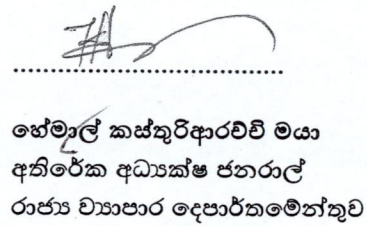 හේමාල් කස්තුරිආරච්චි මයා
අතිරේක අධ්‍යක්ෂ ජනරාල්
රාජ්‍ය ව්‍යාපාර දෙපාර්තමේන්තුව